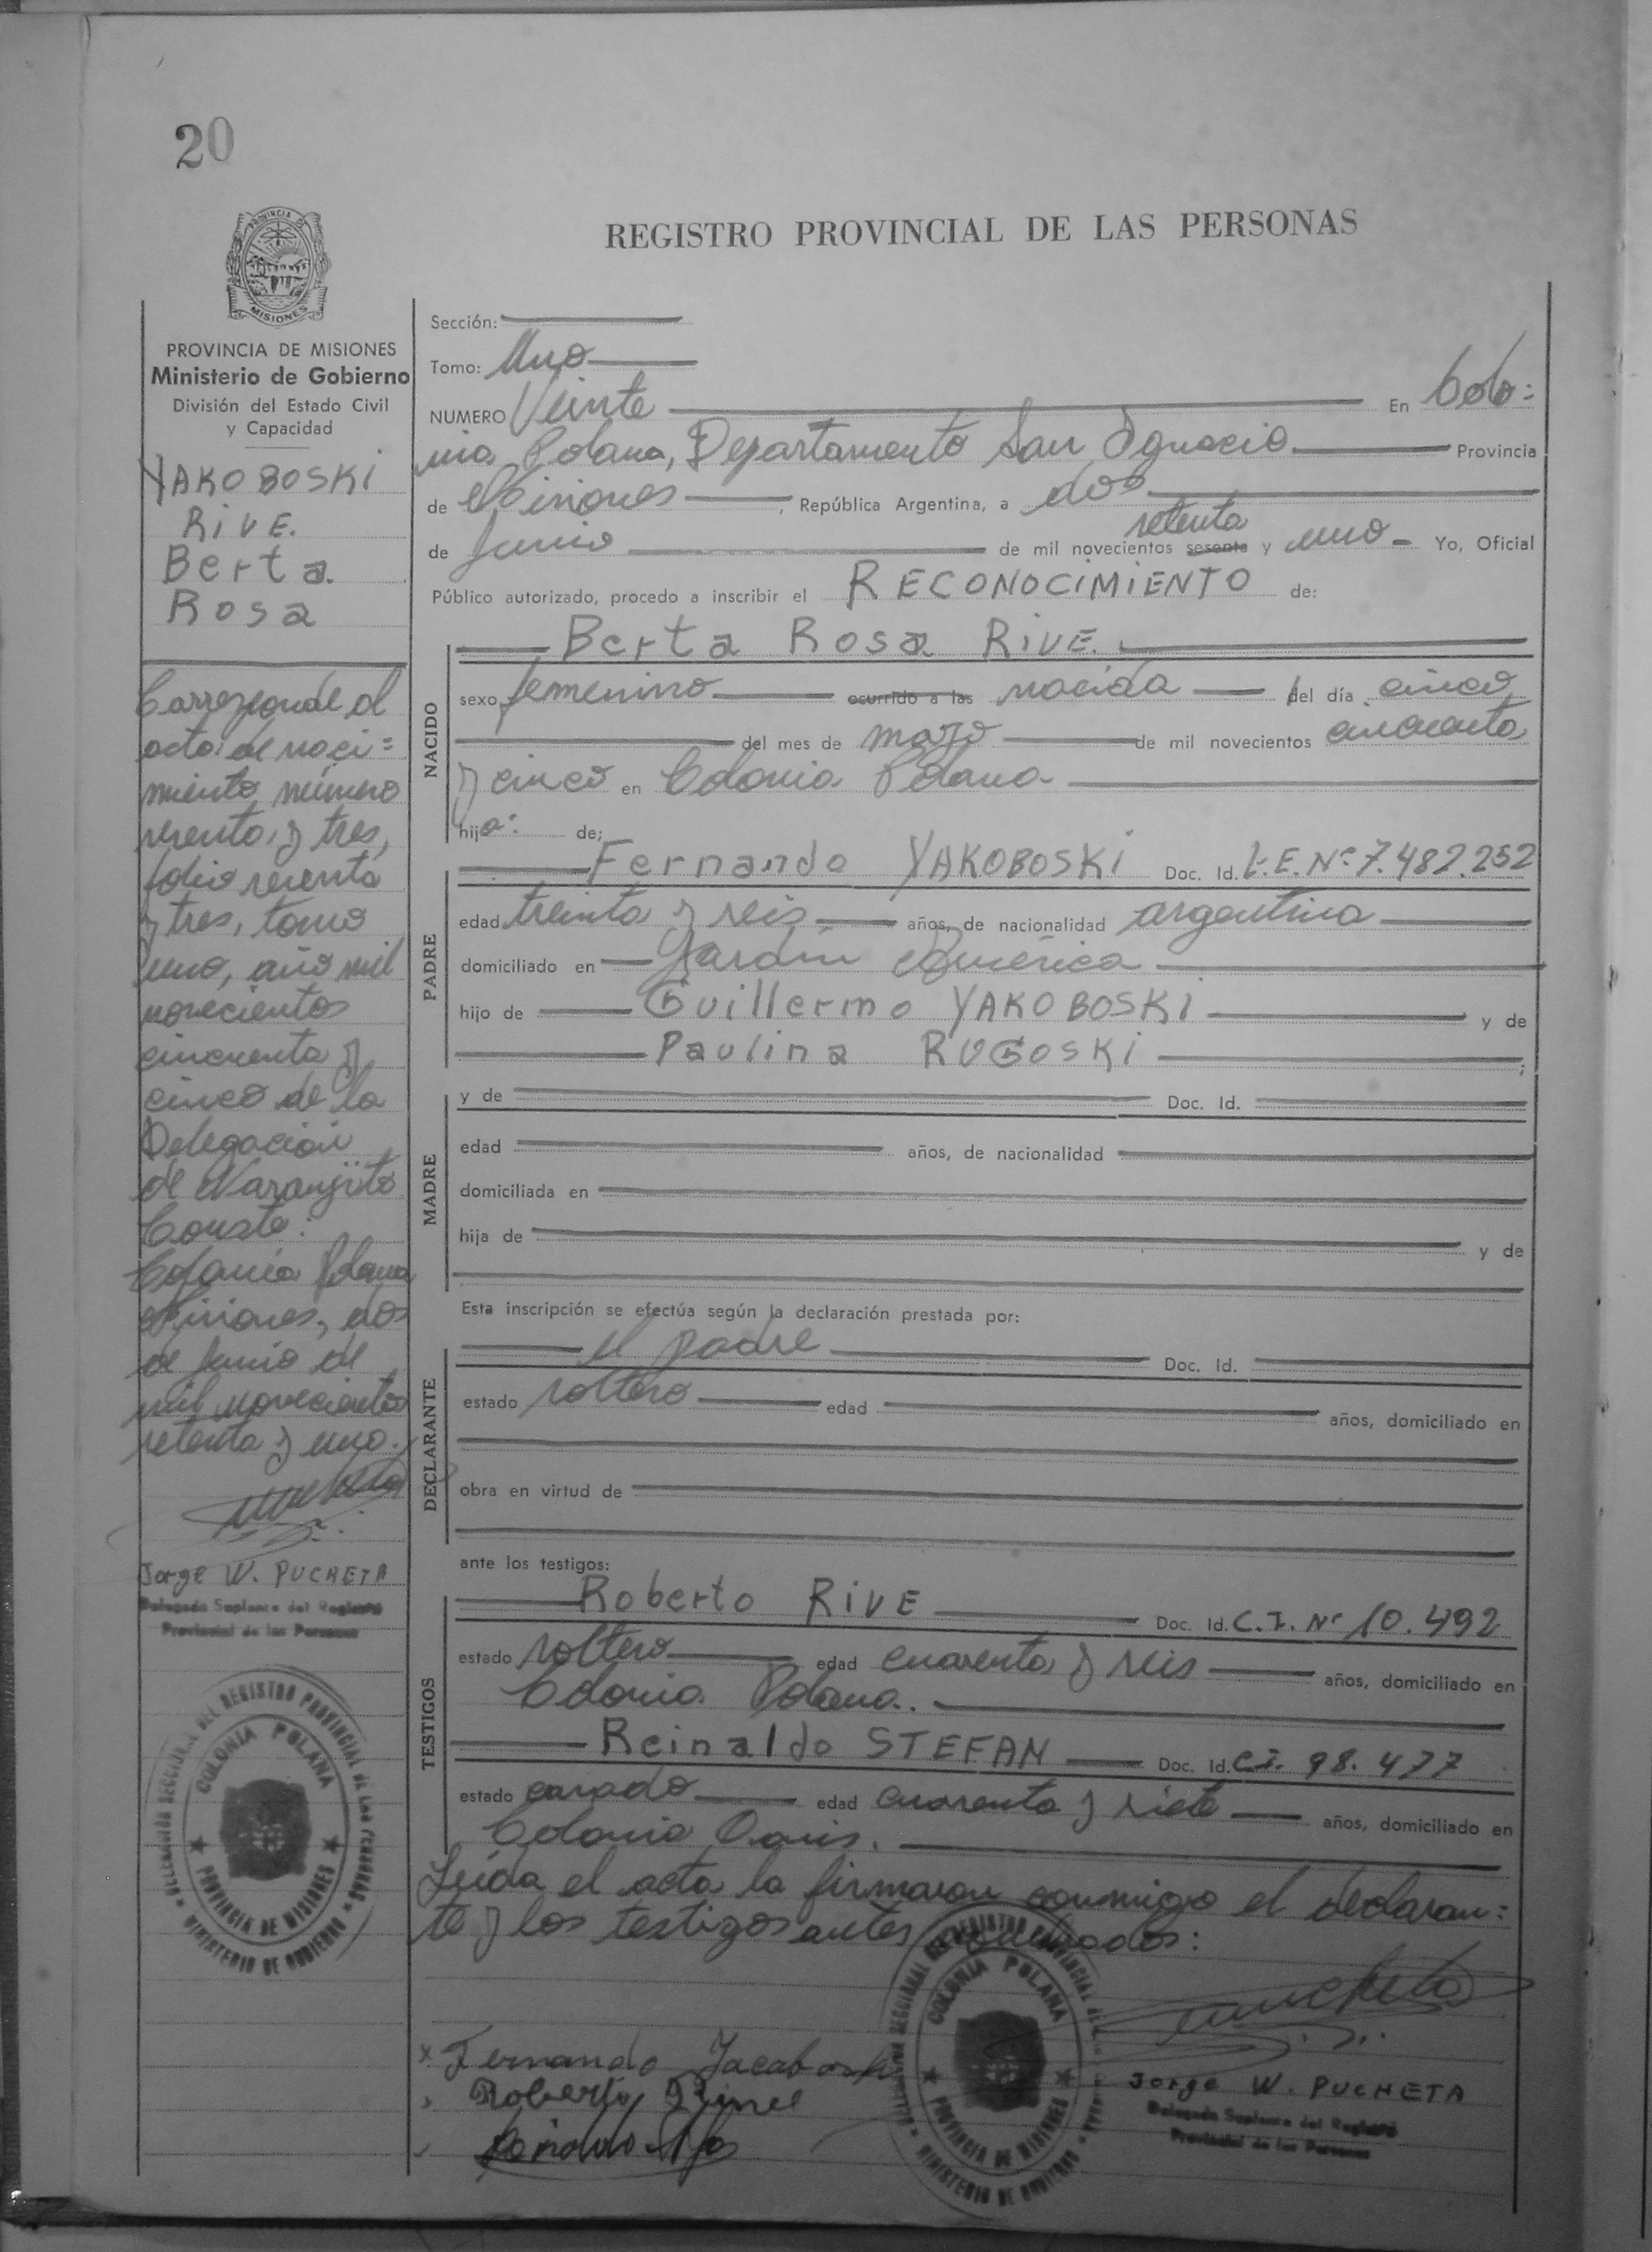 20
PROVINCIA DE
MISIONES
REGISTRO PROVINCIAL DE LAS PERSONAS
PROVINCIA DE MISIONES
Ministerio de Gobierno
División del Estado Civil
y Capacidad
YAKOBOSKI
RIVE.
Berta
Rosa
Corresponde al
acta de naci=
miento número
sesenta y tres,
folio sesenta
y tres, tomo
uno, año mil
novecientos
cincuenta y
cinco de la
Delegación
de Naranjito
Conste:
Colonia Polana
Misiones, dos
de Junio de
mil novecientos
setenta y uno.
Jorge W. PUCHETA
Delegado Suplente del Registro
Provincial de las Personas
DELEGACIÓN SECCIONAL DEL REGISTRO PROVINCIAL DE LAS PERSONAS
COLONIA POLANA
PROVINCIA DE MISIONES
MINISTERIO DE GOBIERNO
Sección:
Tomo: Uno
NUMERO Veinte En Colo=
nia Polana, Departamento San Ignacio Provincia
de Misiones, República Argentina, a dos
setenta
de Junio de mil novecientos sesenta y uno Yo, Oficial
Público autorizado, procedo a inscribir el RECONOCIMIENTO de:
Berta Rosa RIVE.
NACIDO
sexo femenino ocurrido a las nacida del día cinco
del mes de mayo de mil novecientos cincuenta
y cinco en Colonia Polana
hija: de:
PADRE
Fernando YAKOBOSKI Doc. Id. L.E. Nº 7.482.252
edad treinta y seis años, de nacionalidad argentina
domiciliado en Jardín América
hijo de Guillermo YAKOBOSKI y de
Paulina RUGOSKI ;
MADRE
y de Doc. Id.
edad años, de nacionalidad
domiciliada en
hija de y de
Esta inscripción se efectúa según la declaración prestada por:
DECLARANTE
el padre Doc. Id.
estado soltero edad años, domiciliado en
obra en virtud de
ante los testigos:
TESTIGOS
Roberto RIVE Doc. Id. C.I. Nº 10.492
estado soltero edad cuarenta y seis años, domiciliado en
Colonia Polana.
Reinaldo STEFAN Doc. Id. C.I. 98.477
estado casado edad cuarenta y siete años, domiciliado en
Colonia Oasis.
Leída el acta la firmaron conmigo el declaran=
te y los testigos antes nombrados:
Fernando Jacaboski
Roberto
DELEGACIÓN SECCIONAL DEL REGISTRO PROVINCIAL DE LAS PERSONAS
COLONIA POLANA
PROVINCIA DE MISIONES
MINISTERIO DE GOBIERNO
Jorge W. PUCHETA
Delegado Suplente del Registro
Provincial de las Personas